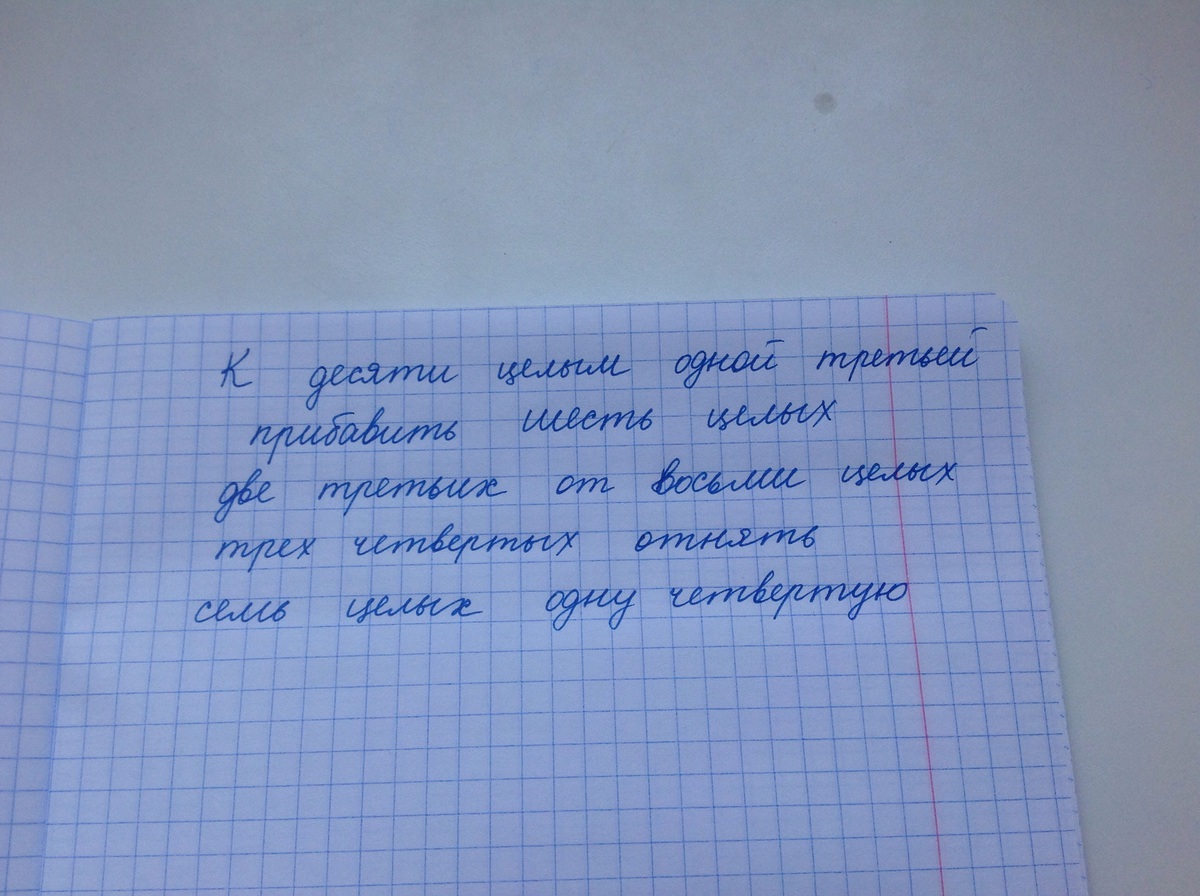 К десяти целым одной третьей
прибавить шесть целых
две третьих от восьми целых
трех четвертых отнять
семь целых одну четвертую